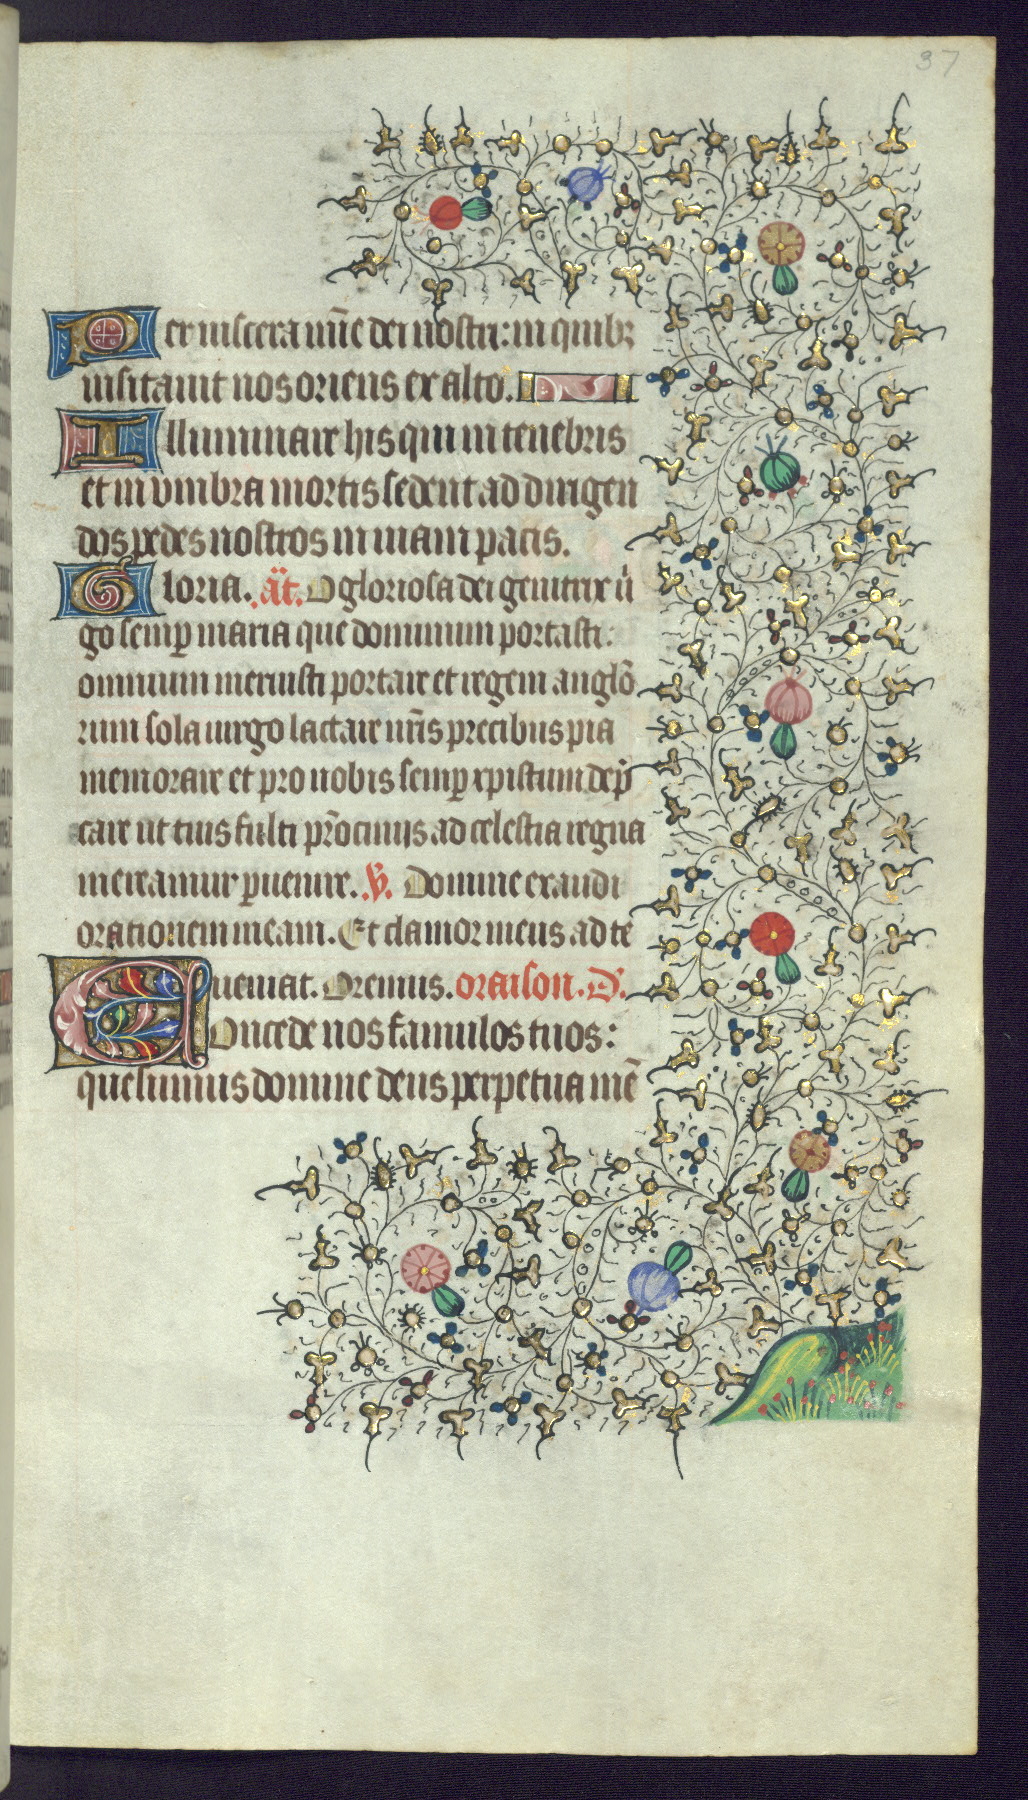 37
Per uiscera mīe dei nostri: in quibꝫ
uisitauit nos oriens ex alto.
Illuminare his qui in tenebris
et in vmbra mortis sedent ad dirigen
dos pedes nostros in uiam pacis.
Gloria. āt. O gloriosa dei genitrix uͥ
go semꝑ maria que dominum portasti:
omnium meruisti portare et regem anglō
rum sola uirgo lactare nr̄is precibus pia
memorare et pro nobis semꝑ xpistum dep̄
care ut tuis fulti pr̄ocinijs ad celestia regna
mereamur ꝑuenire. ℣. Domine exaudi
orationem meam. Et clamor meus ad te
ueniat. Oremus. oraison. D.
Concede nos famulos tuos:
quesumus domine deus perpetua mē